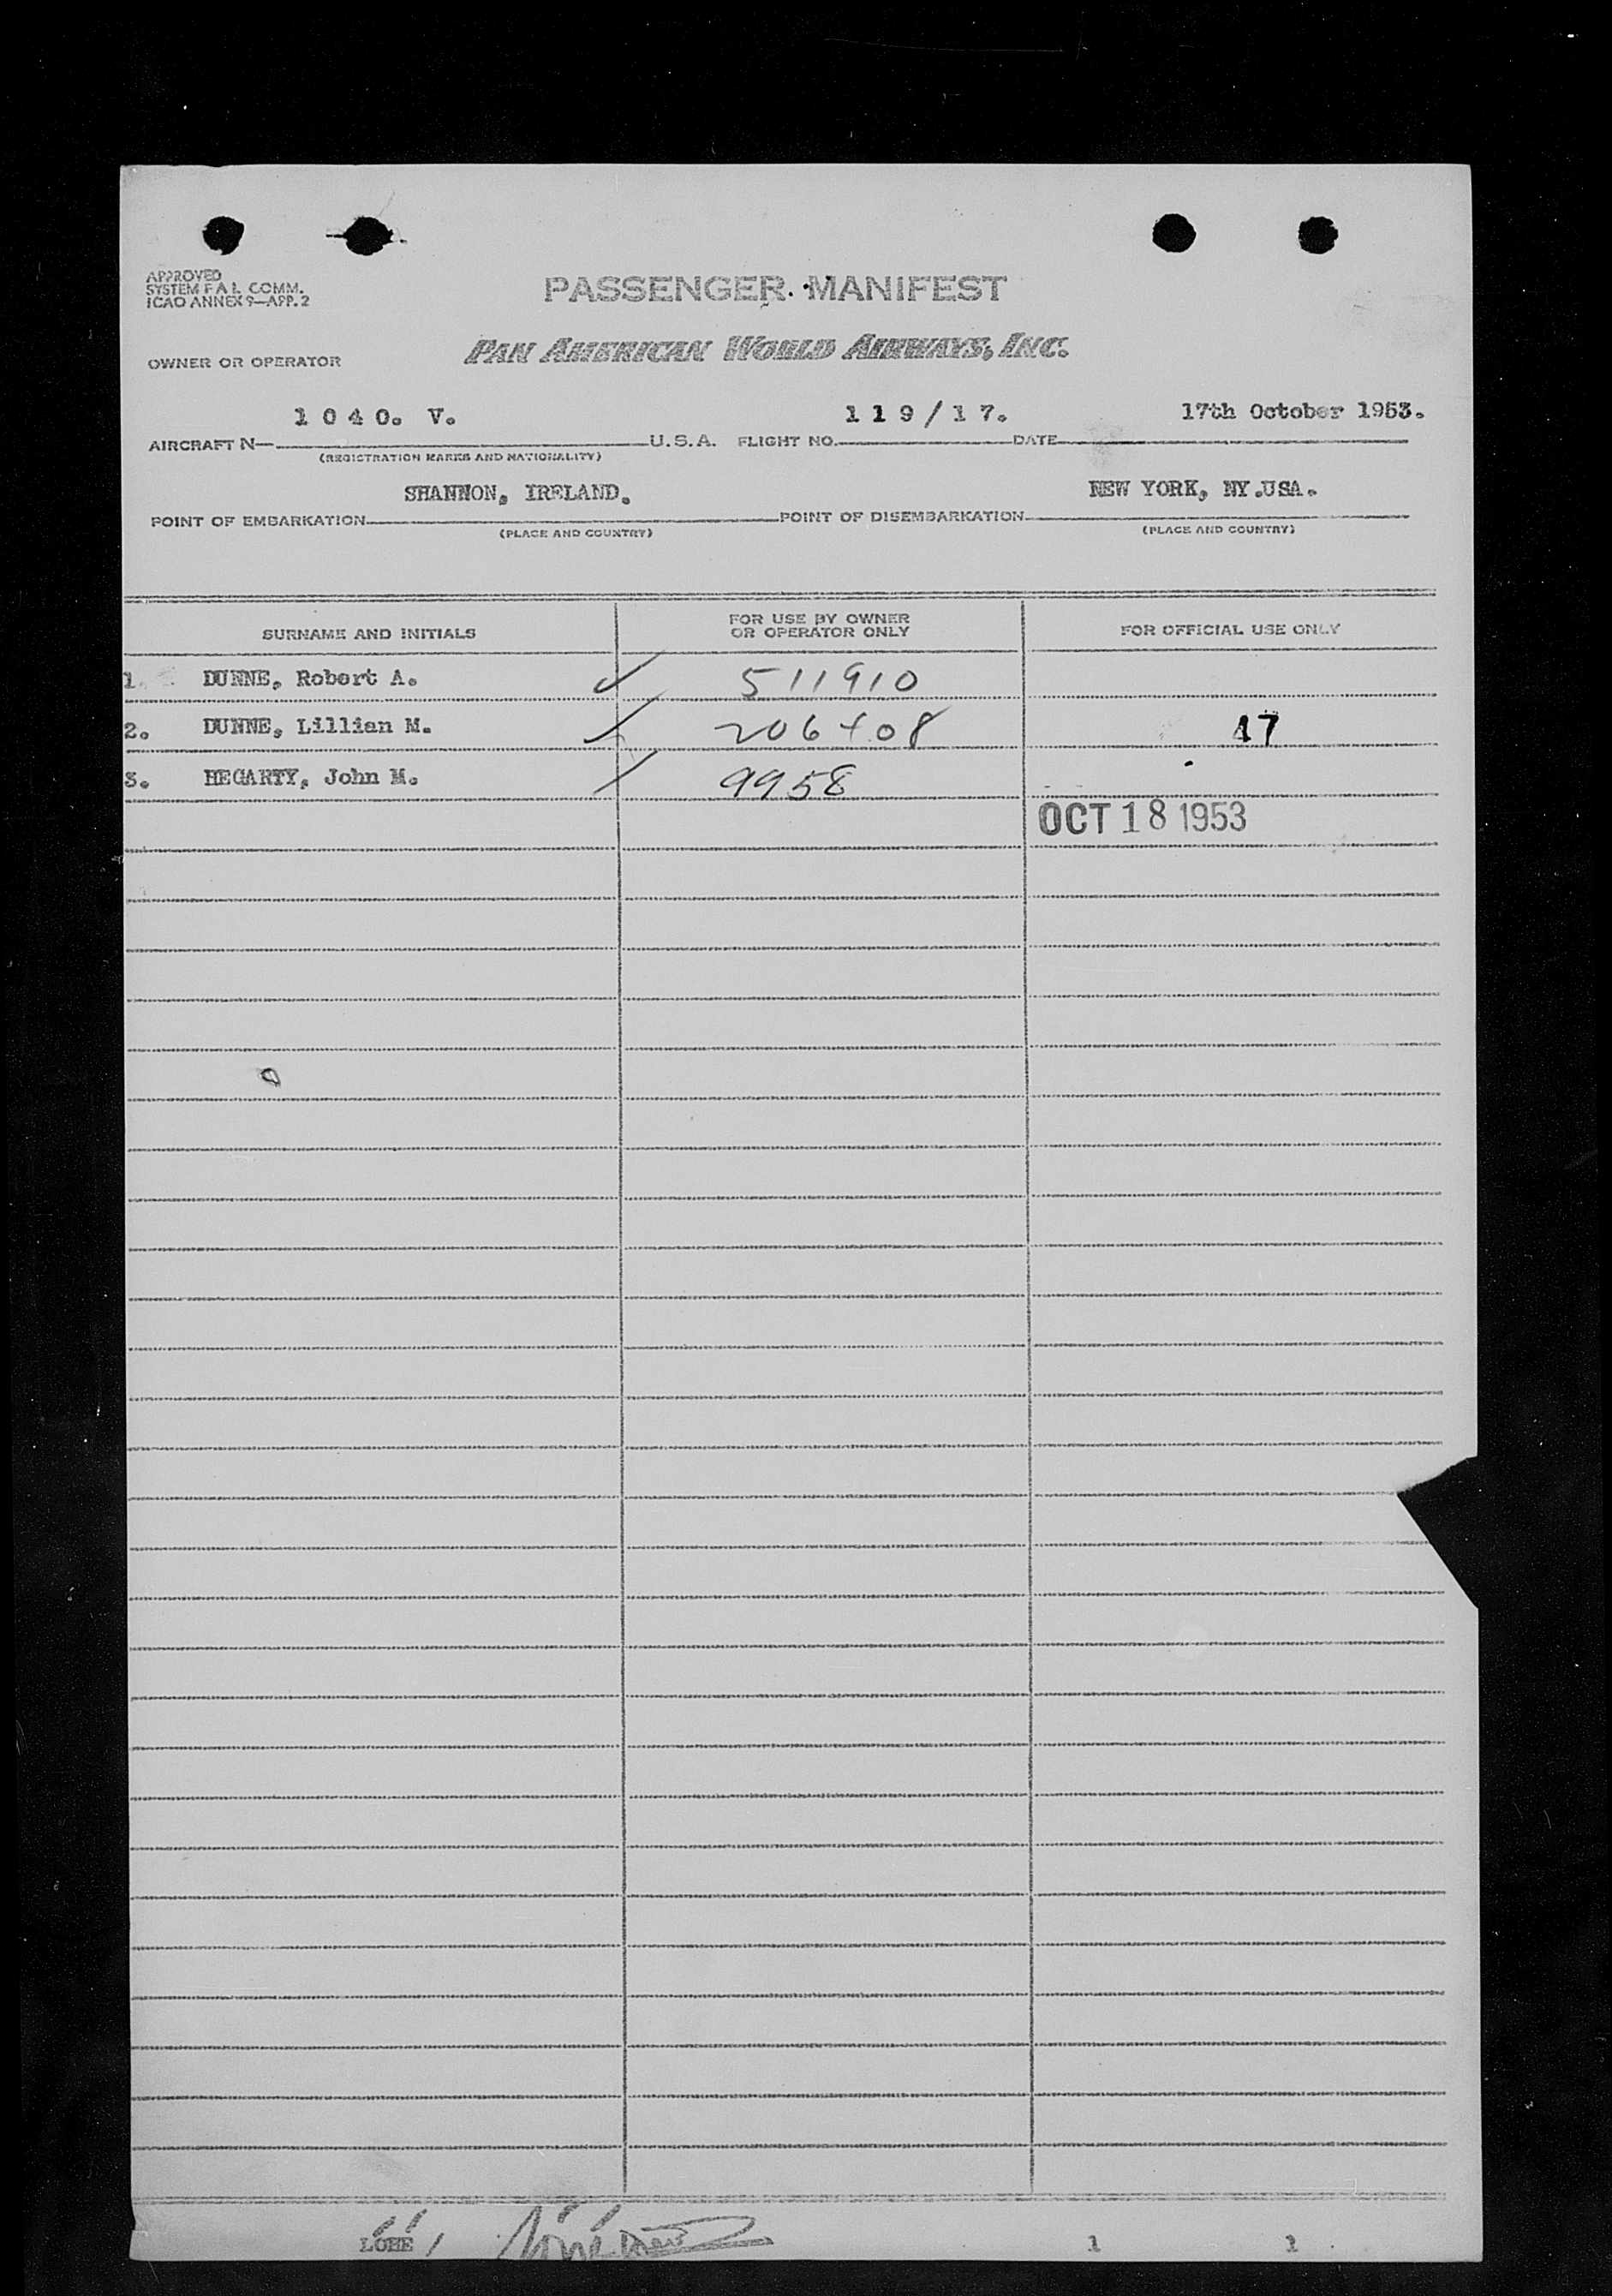 APPROVED
SYSTEM F A L COMM.
ICAO ANNEX 9—APP. 2
PASSENGER MANIFEST
OWNER OR OPERATOR
PAN AMERICAN WORLD AIRWAYS, INC.
AIRCRAFT N— 1 0 4 0. V. U.S.A. FLIGHT NO. 1 1 9 / 1 7. DATE 17th October 1953.
(REGISTRATION MARKS AND NATIONALITY)
POINT OF EMBARKATION SHANNON, IRELAND. POINT OF DISEMBARKATION NEW YORK, NY.USA.
(PLACE AND COUNTRY) (PLACE AND COUNTRY)
SURNAME AND INITIALS FOR USE BY OWNER OR OPERATOR ONLY FOR OFFICIAL USE ONLY
1. DUNNE, Robert A. 511910
2. DUNNE, Lillian M. 47
3. HEGARTY, John M. 9958
OCT 18 1953
1 1